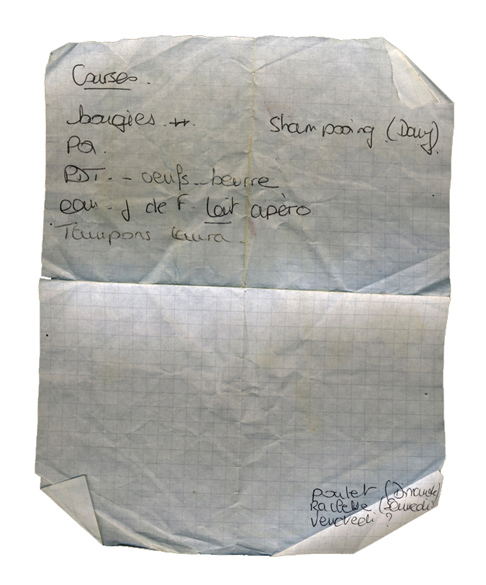 Courses.
bougies ++.
Shampooing (Davy)
PQ.
PDT. - oeufs - beurre
eau - J de F lait apéro
Tampons Laura.
poulet (Dimanche)
Raclette (Samedi)
Vendredi ?